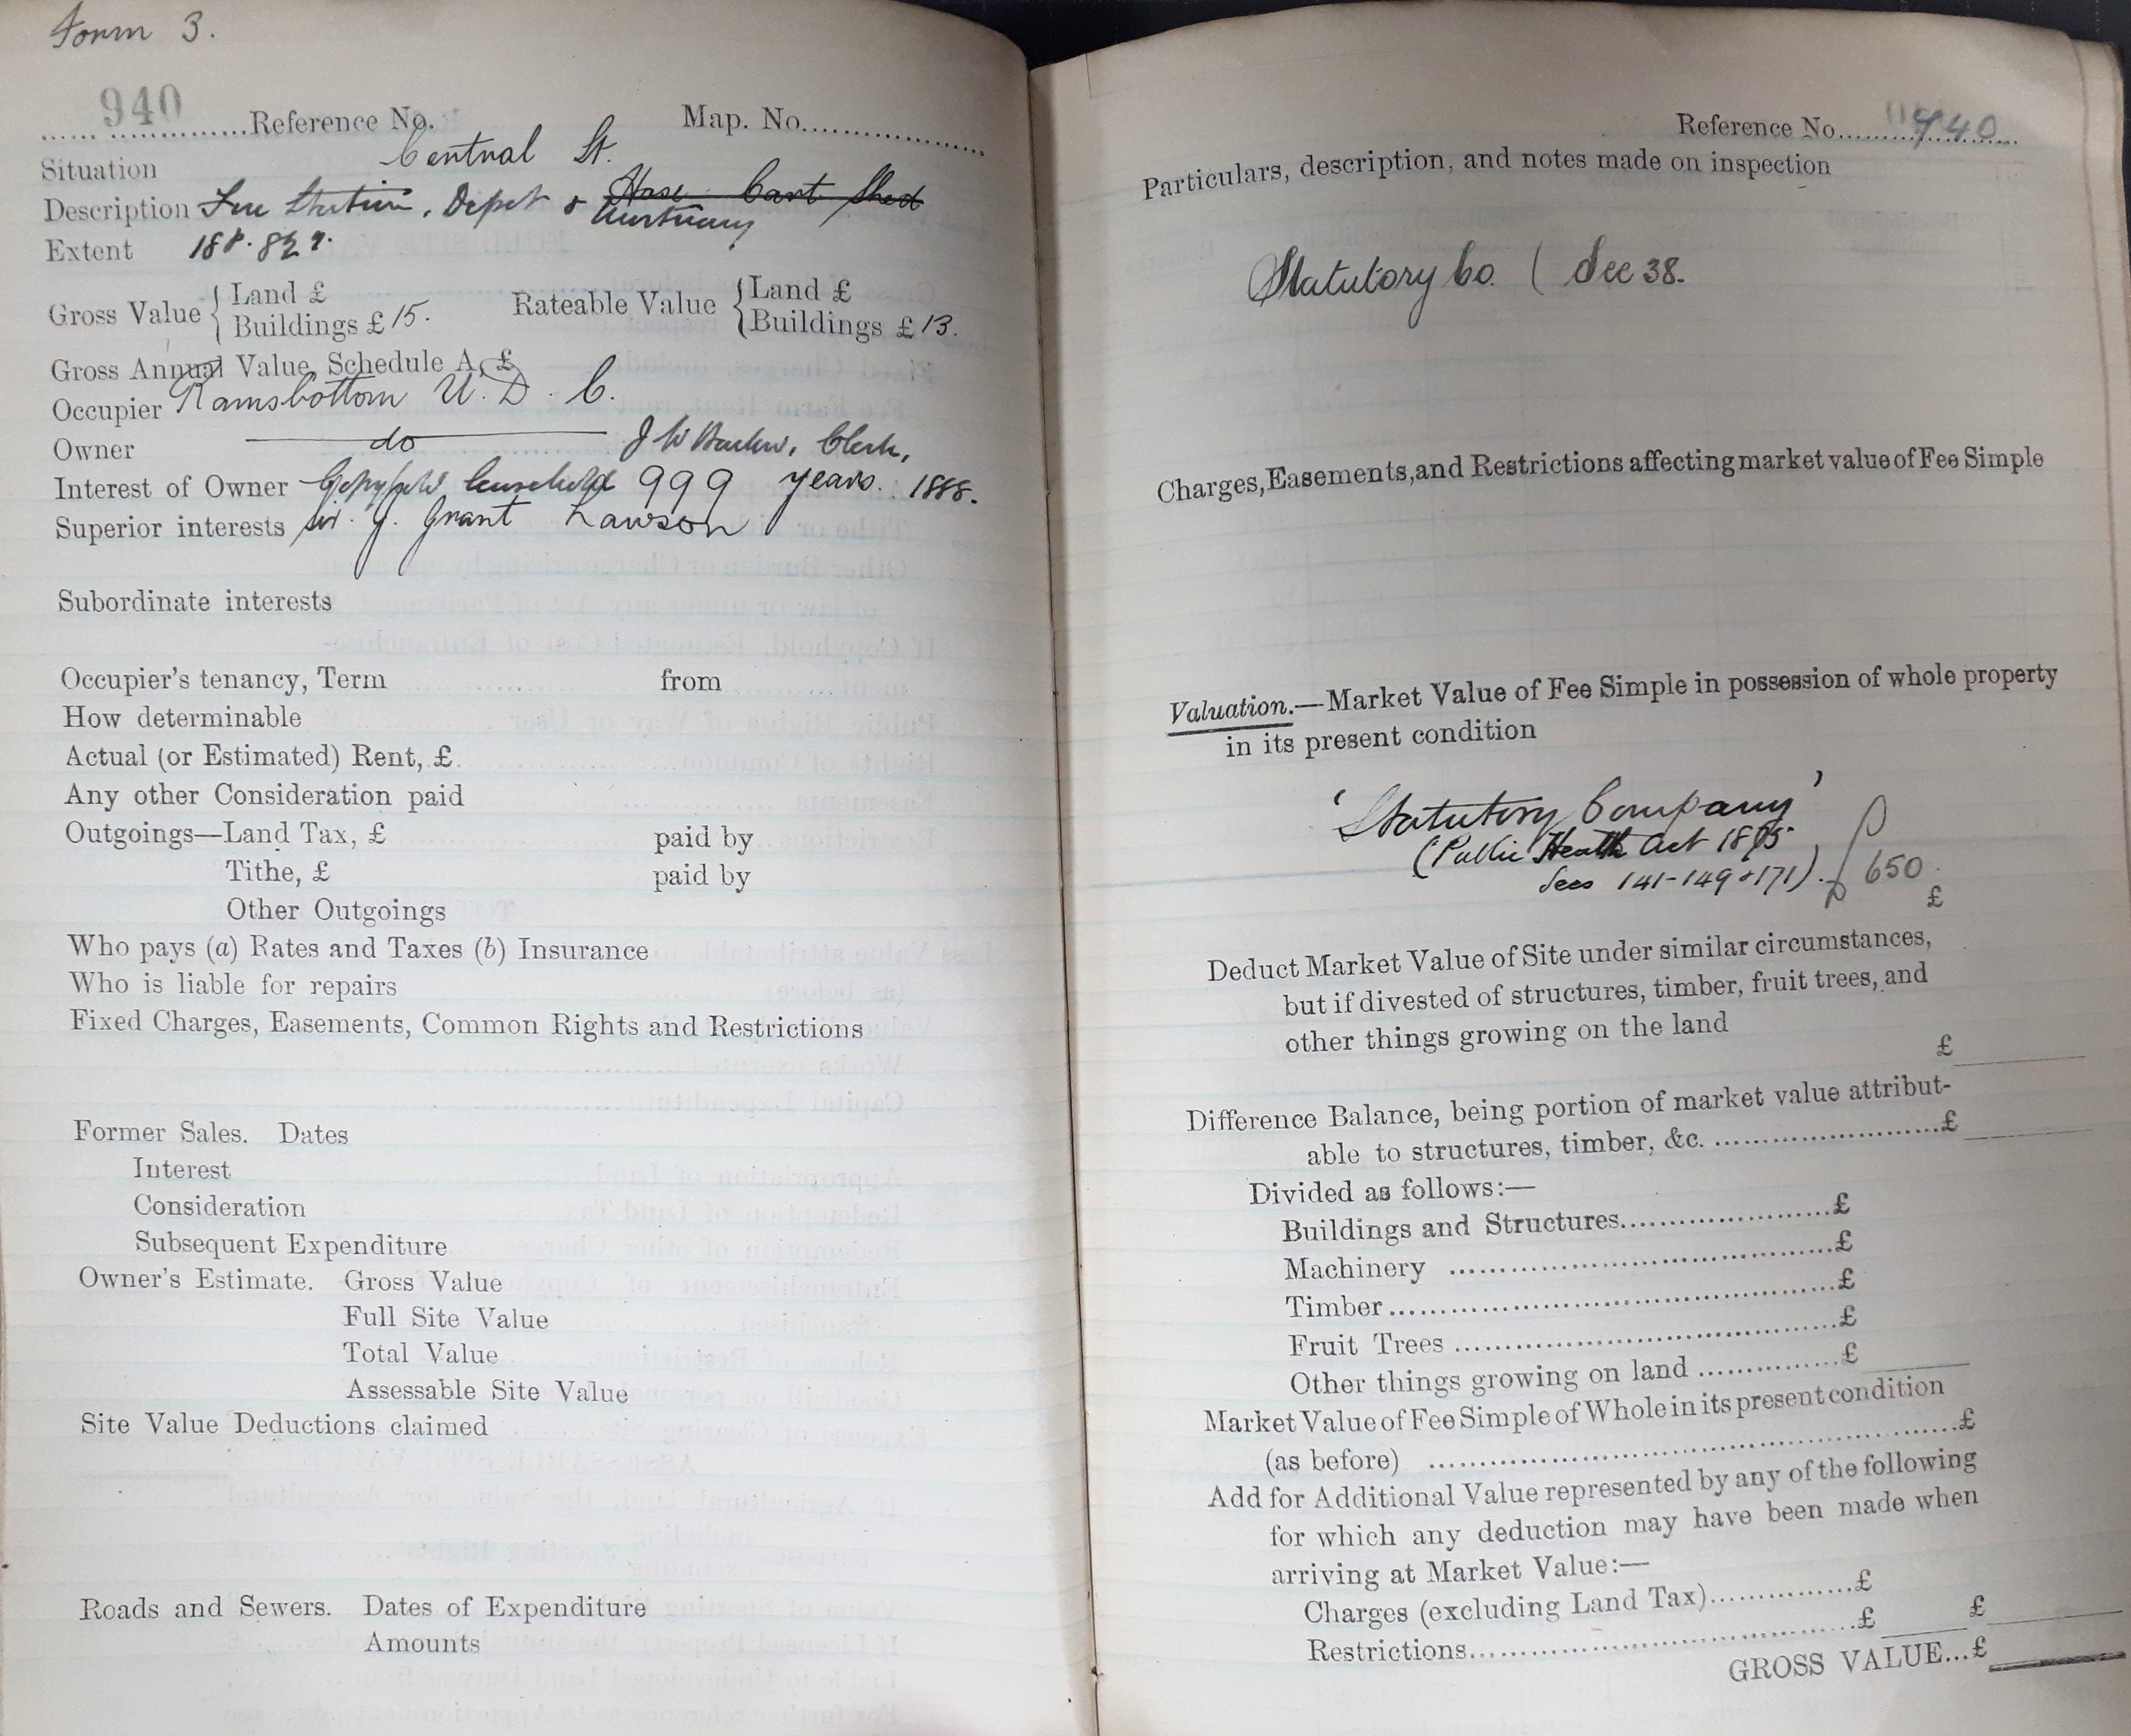 Form 3.
940 Reference No. Map. No.
Situation Central St.
Description Fire Station, Depot & Hose Cart Shed
Mortuary
Extent
Gross Value { Land £
Buildings £ 15.
Rateable Value { Land £
Buildings £ 13.
Gross Annual Value, Schedule A, £
Occupier Ramsbottom U. D. C.
Owner do J W Barlow, Clerk,
Interest of Owner leasehold 999 years. 1888.
Superior interests Sir J. Grant Lawson
Subordinate interests
Occupier's tenancy, Term from
How determinable
Actual (or Estimated) Rent, £
Any other Consideration paid
Outgoings—Land Tax, £ paid by
Tithe, £ paid by
Other Outgoings
Who pays (a) Rates and Taxes (b) Insurance
Who is liable for repairs
Fixed Charges, Easements, Common Rights and Restrictions
Former Sales. Dates
Interest
Consideration
Subsequent Expenditure
Owner's Estimate. Gross Value
Full Site Value
Total Value
Assessable Site Value
Site Value Deductions claimed
Roads and Sewers. Dates of Expenditure
Amounts
Reference No. 940
Particulars, description, and notes made on inspection
Statutory Co. ( Sec 38.
Charges, Easements, and Restrictions affecting market value of Fee Simple
Valuation.—Market Value of Fee Simple in possession of whole property
in its present condition
'Statutory Company'
(Public Health Act 1875
Secs 141-149 & 171). 650
£
Deduct Market Value of Site under similar circumstances,
but if divested of structures, timber, fruit trees, and
other things growing on the land
£
Difference Balance, being portion of market value attribut-
able to structures, timber, &c. £
Divided as follows:—
Buildings and Structures £
Machinery £
Timber £
Fruit Trees £
Other things growing on land £
Market Value of Fee Simple of Whole in its present condition
(as before) £
Add for Additional Value represented by any of the following
for which any deduction may have been made when
arriving at Market Value:—
Charges (excluding Land Tax) £
Restrictions £ £
GROSS VALUE...£